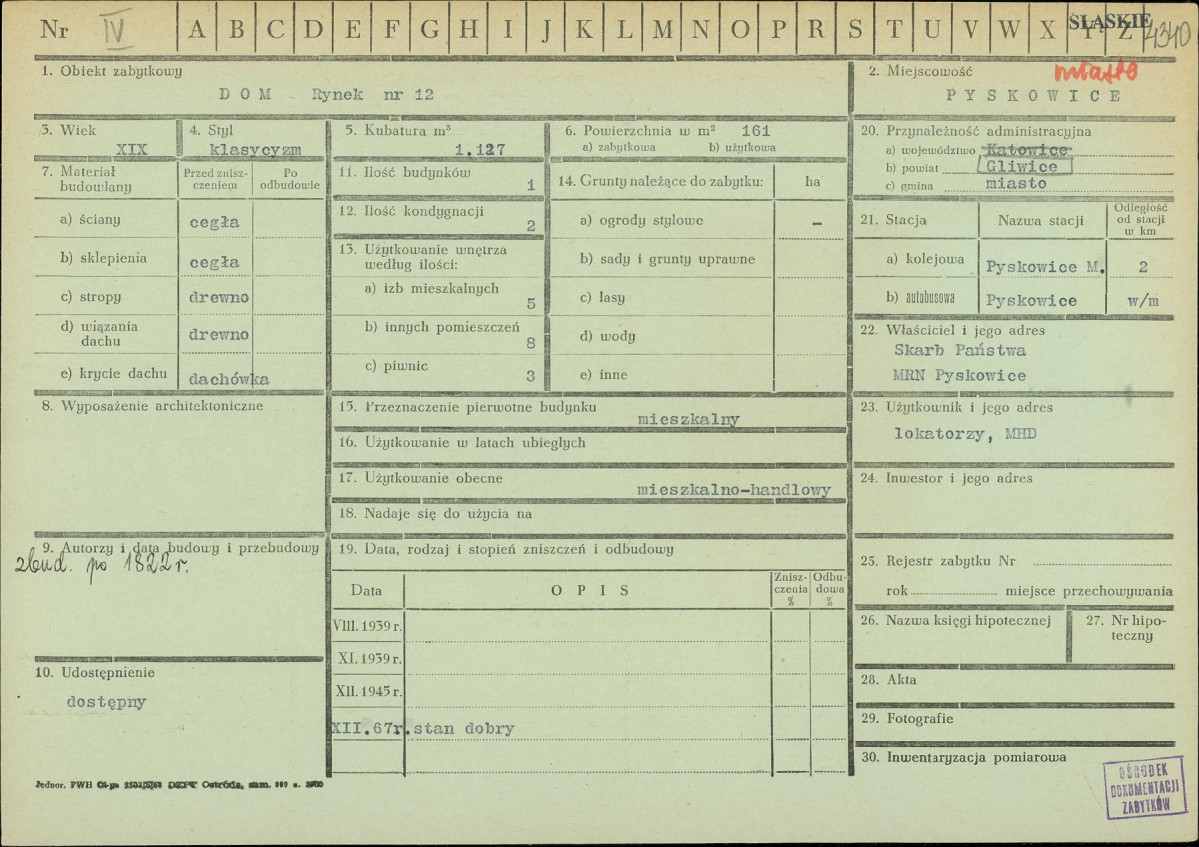 Nr IV A B C D E F G H I J K L M N O P R S T U V W X Y Z ŚLĄSKIE 4340
1. Obiekt zabytkowy
DOM Rynek nr 12
2. Miejscowość miasto
PYSKOWICE
3. Wiek
XIX
4. Styl
klasycyzm
5. Kubatura m³
1.127
6. Powierzchnia w m² 161
a) zabytkowa b) użytkowa
7. Materiał budowlany
Przed zniszczeniem
Po odbudowie
a) ściany cegła
b) sklepienia cegła
c) stropy drewno
d) wiązania dachu drewno
e) krycie dachu dachówka
8. Wyposażenie architektoniczne
9. Autorzy i data budowy i przebudowy
zbud. po 1822 r.
10. Udostępnienie
dostępny
11. Ilość budynków 1
12. Ilość kondygnacji 2
13. Użytkowanie wnętrza według ilości:
a) izb mieszkalnych 5
b) innych pomieszczeń 8
c) piwnic 3
14. Grunty należące do zabytku: ha
a) ogrody stylowe –
b) sady i grunty uprawne
c) lasy
d) wody
e) inne
15. Przeznaczenie pierwotne budynku
mieszkalny
16. Użytkowanie w latach ubiegłych
17. Użytkowanie obecne
mieszkalno-handlowy
18. Nadaje się do użycia na
19. Data, rodzaj i stopień zniszczeń i odbudowy
Data OPIS Zniszczenia % Odbudowa %
VIII. 1939 r.
XI. 1939 r.
XII. 1945 r.
XII.67r. stan dobry
20. Przynależność administracyjna
a) województwo Katowice
b) powiat Gliwice
c) gmina miasto
21. Stacja Nazwa stacji Odległość od stacji w km
a) kolejowa Pyskowice M. 2
b) autobusowa Pyskowice w/m
22. Właściciel i jego adres
Skarb Państwa
MRN Pyskowice
23. Użytkownik i jego adres
lokatorzy, MHD
24. Inwestor i jego adres
25. Rejestr zabytku Nr
rok miejsce przechowywania
26. Nazwa księgi hipotecznej
27. Nr hipoteczny
28. Akta
29. Fotografie
30. Inwentaryzacja pomiarowa
OŚRODEK
DOKUMENTACJI
ZABYTKÓW
Jednor. PWH